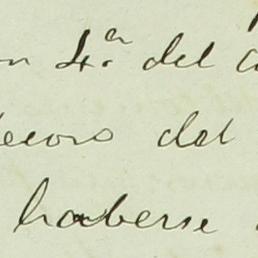 4.a del
decoro del
haberse